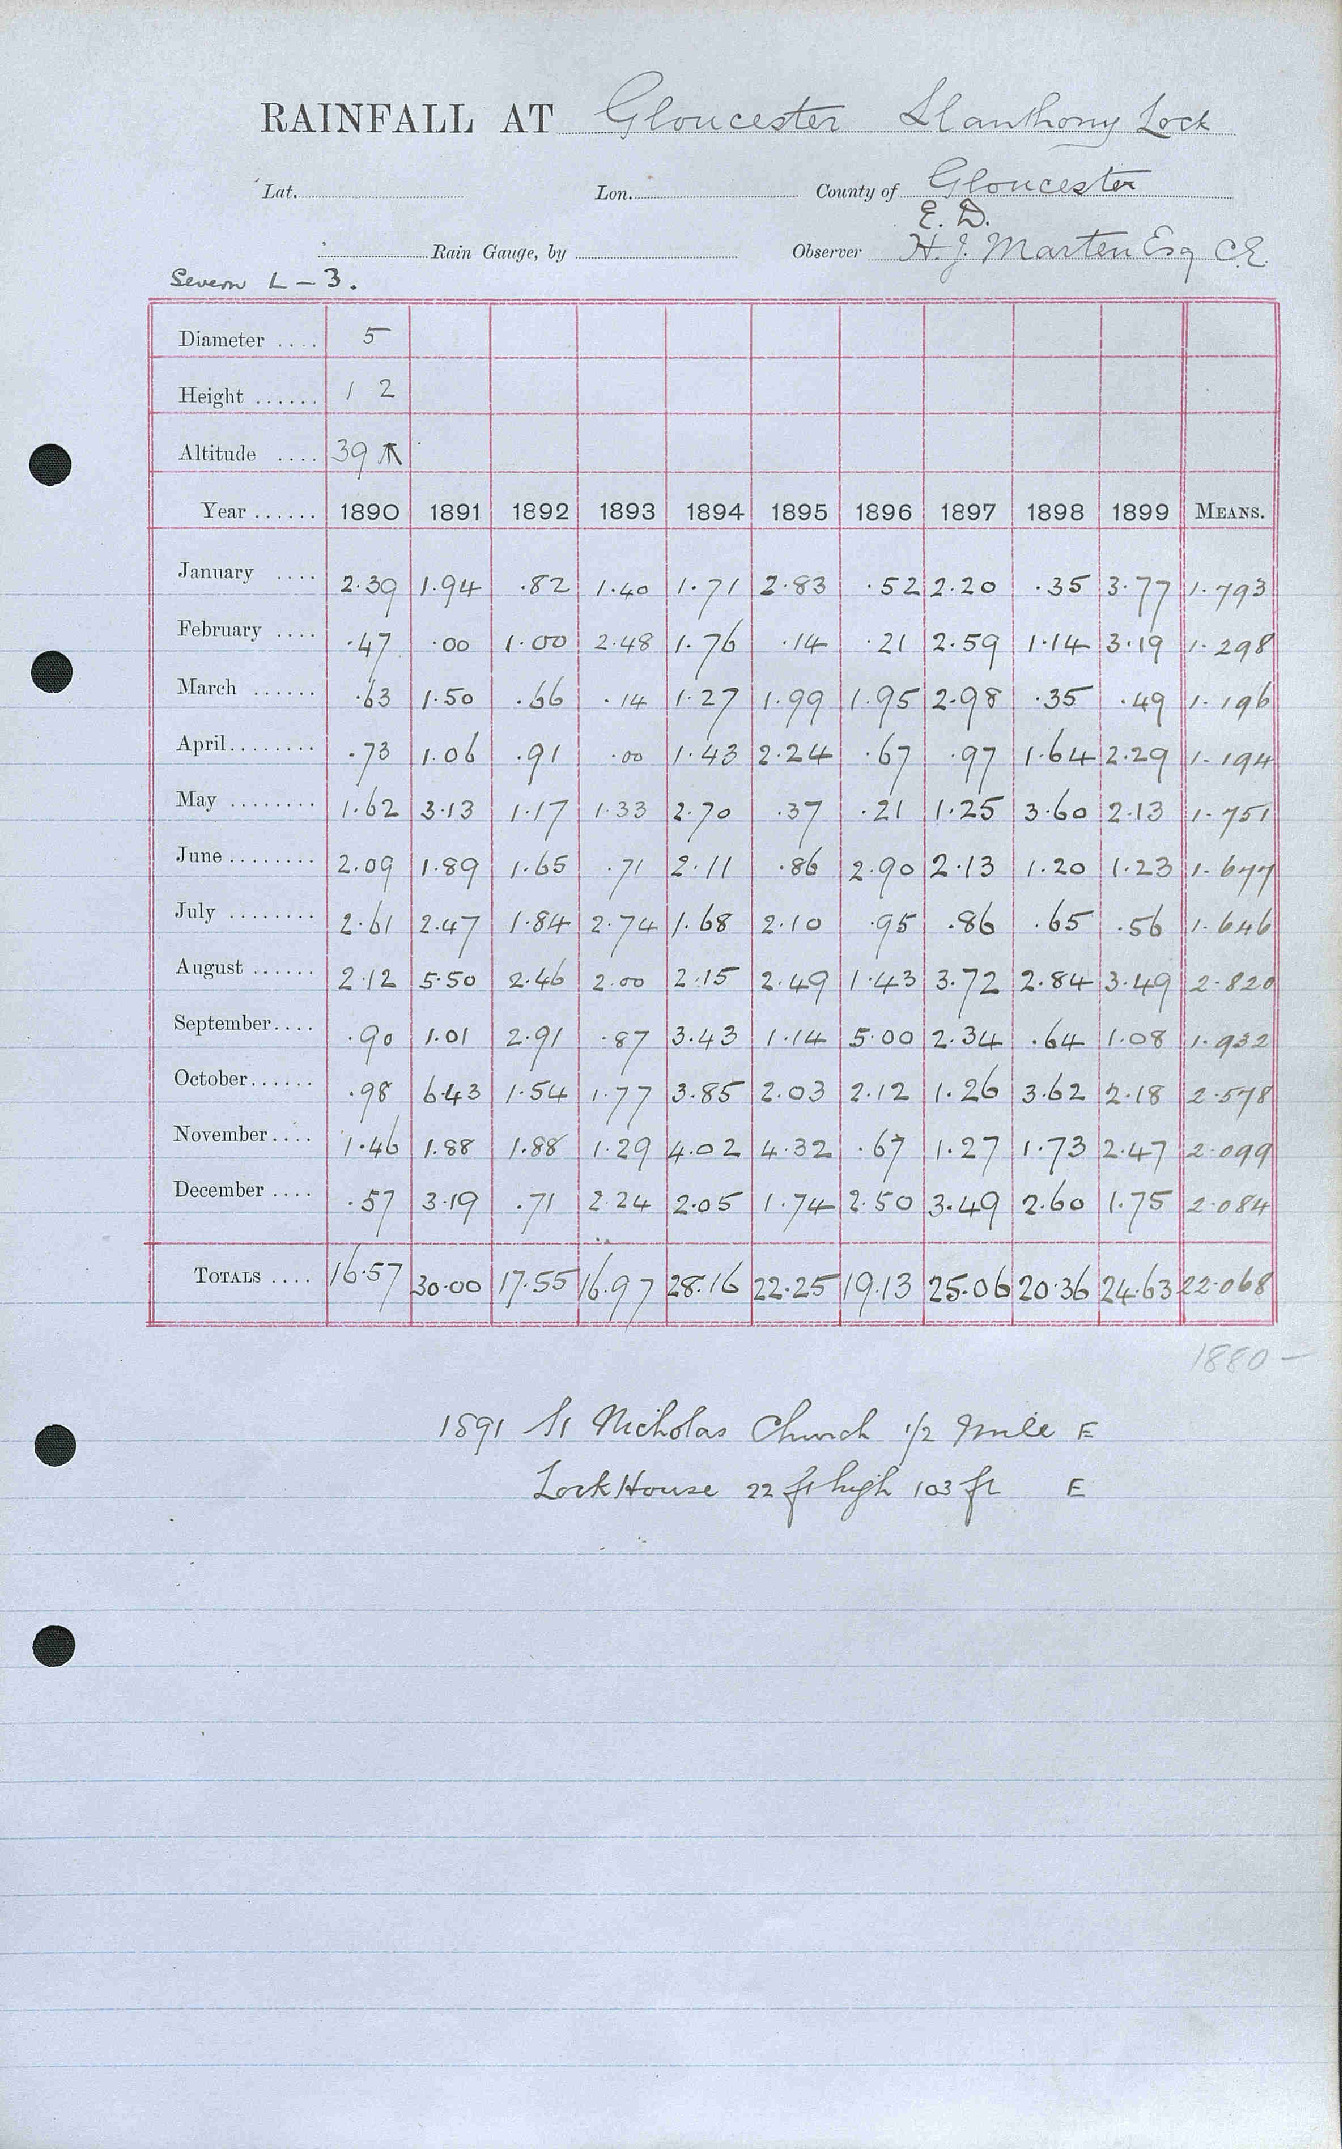 RAINFALL AT Gloucester Llanthony Lock
Lat. Lon. County of Gloucester
E. D.
Rain Gauge, by Observer H. J. Marten Esq C.E.
Severn L – 3.
Diameter .... 5
Height ...... 1 2
Altitude .... 39
Year ...... 1890 1891 1892 1893 1894 1895 1896 1897 1898 1899 MEANS.
January .... 2.39 1.94 .82 1.40 1.71 2.83 .52 2.20 .35 3.77 1.793
February .... .47 .00 1.00 2.48 1.76 .14 .21 2.59 1.14 3.19 1.298
March ...... .63 1.50 .66 .14 1.27 1.99 1.95 2.98 .35 .49 1.196
April........ .73 1.06 .91 .00 1.43 2.24 .67 .97 1.64 2.29 1.194
May ........ 1.62 3.13 1.17 1.33 2.70 .37 .21 1.25 3.60 2.13 1.751
June ........ 2.09 1.89 1.65 .71 2.11 .86 2.90 2.13 1.20 1.23 1.677
July ........ 2.61 2.47 1.84 2.74 1.68 2.10 .95 .86 .65 .56 1.646
August ...... 2.12 5.50 2.46 2.00 2.15 2.49 1.43 3.72 2.84 3.49 2.820
September.... .90 1.01 2.91 .87 3.43 1.14 5.00 2.34 .64 1.08 1.932
October...... .98 6.43 1.54 1.77 3.85 2.03 2.12 1.26 3.62 2.18 2.578
November.... 1.46 1.88 1.88 1.29 4.02 4.32 .67 1.27 1.73 2.47 2.099
December .... .57 3.19 .71 2.24 2.05 1.74 2.50 3.49 2.60 1.75 2.084
TOTALS .... 16.57 30.00 17.55 16.97 28.16 22.25 19.13 25.06 20.36 24.63 22.068
1880 –
1891 St Nicholas Church 1/2 Mile E
Lock House 22 ft high 103 ft E